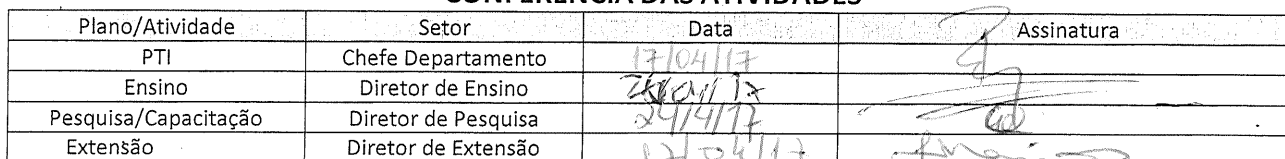 CONFERÊNCIA DAS ATIVIDADES
Plano/Atividade Setor Data Assinatura
PTI Chefe Departamento 17/04/17
Ensino Diretor de Ensino
Pesquisa/Capacitação Diretor de Pesquisa 24/4/17
Extensão Diretor de Extensão 17/04/17